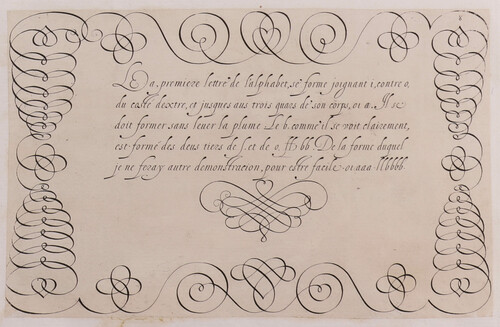 Le a, premiere lettre de l'alphabet, se forme joignant i, contre o,
du costé dextre, et jusques aus trois quars de son corps, oı a. Il se
doit former sans leuer la plume Le b. comme il se voit clairement,
est formé des deus tiers de ſ, et de o. ſſ bb De la forme duquel
je ne feray autre demonstracion, pour estre facile. oı aaa llbbbb.